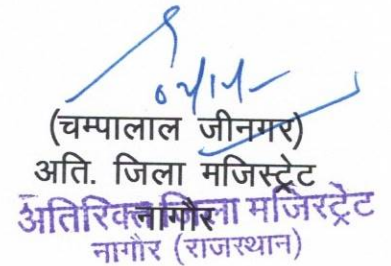 (चम्पालाल जीनगर)
अति. जिला मजिस्ट्रेट
नागौर
अतिरिक्त जिला मजिस्ट्रेट
नागौर (राजस्थान)